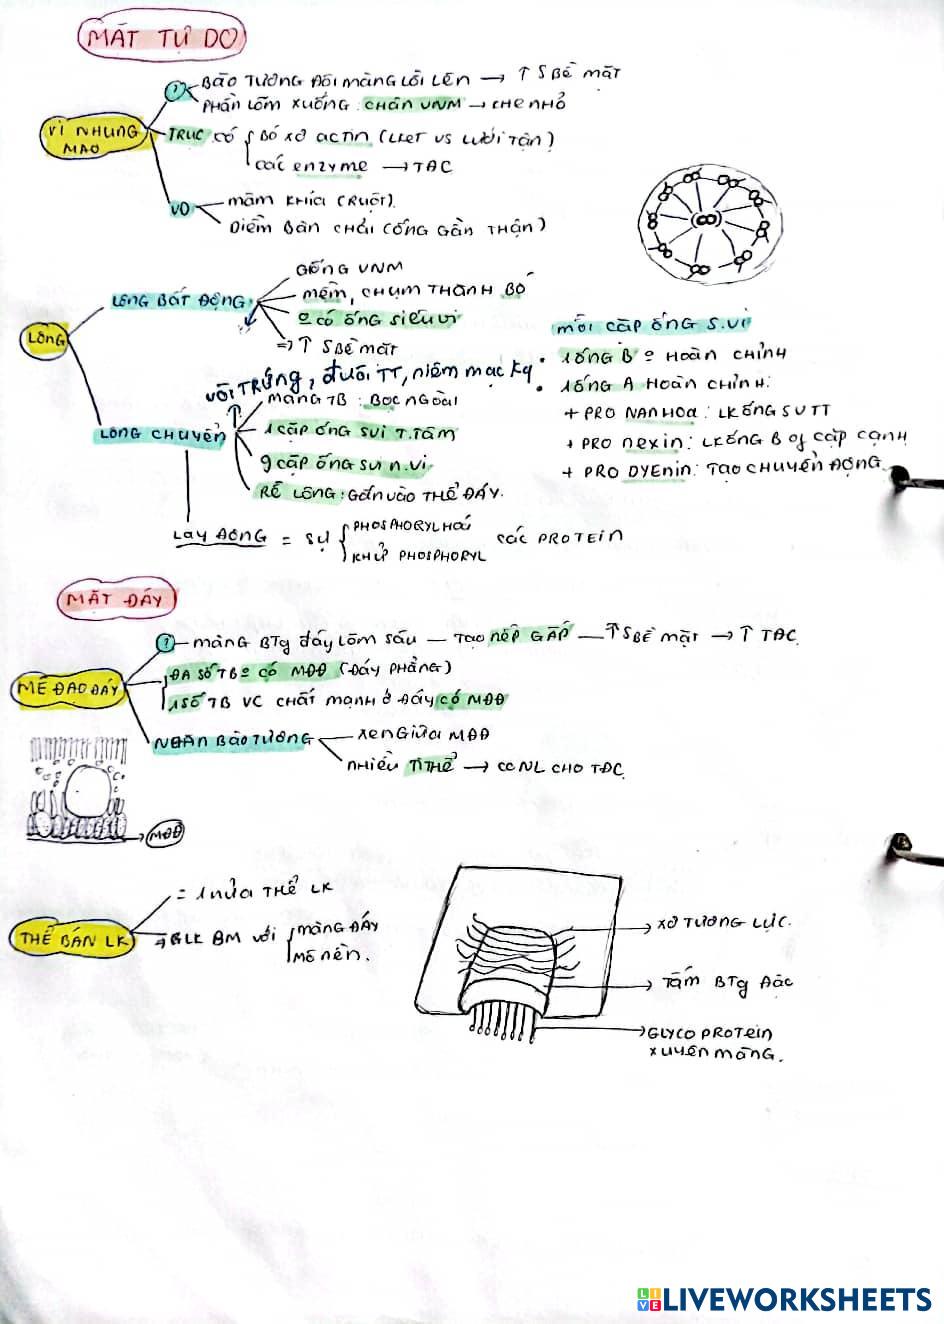 MẶT TỰ DO
BÀO TƯƠNG ĐỘI MÀNG LỒI LÊN → ↑ S BỀ MẶT
PHẦN LÕM XUỐNG: CHÂN VNM → CHE NHỎ
VI NHUNG MAO
TRỤC CÓ BÓ XƠ ACTIN (LKẾT VS LƯỚI TẬN)
CÁC enzyme → TĐC
VD
mâm KHÍA (RUỘT).
DIỀM BÀN CHẢI (ỐNG GẦN THẬN)
GIỐNG VNM
LÔNG BẤT ĐỘNG
mềm, CHỤM THÀNH BÓ
O CÓ ỐNG SIÊU VI
⇒ ↑ S BỀ MẶT
LÔNG
VÒI TRỨNG, đuôi TT, niêm mạc KQ
MÀNG TB: BỌC NGOÀI
LÔNG CHUYỂN
1 CẶP ỐNG SVI T.TÂM
9 CẶP ỐNG SVI N.VI
RỄ LÔNG: GẮN VÀO THỂ ĐÁY.
LAY ĐỘNG = SỰ PHOSPHORYL HOÁ
KHỬ PHOSPHORYL
CÁC PROTEIN
mỖI CẶP ỐNG S.VI
• 1 ỐNG B O HOÀN CHỈNH
• 1 ỐNG A HOÀN CHỈNH:
+ PRO NAN HOA: LK ỐNG SV TT
+ PRO nexin: LK ỐNG B of CẶP CẠNH
+ PRO DYEnin: TẠO CHUYỂN ĐỘNG
MẶT ĐÁY
màng BTg đáy LÕM SÂU — TẠO NẾP GẤP — ↑ S BỀ mặt → ↑ TĐC
MÊ ĐẠO ĐÁY
ĐA SỐ TB O CÓ MĐĐ (ĐÁY PHẲNG)
1 SỐ TB VC CHẤT MẠNH Ở ĐÁY CÓ MĐĐ
NHÂN BÀO TƯƠNG
XEN GIỮA MĐĐ
NHIỀU TI THỂ → CC NL CHO TĐC
MĐĐ
= 1 NỬA THỂ LK
THỂ BÁN LK
LK BM VỚI MÀNG ĐÁY
MÔ NỀN.
XƠ TƯƠNG LỰC.
TẤM BTg ĐẶC
GLYCOPROTEIN
XUYÊN MÀNG.
LIVEWORKSHEETS